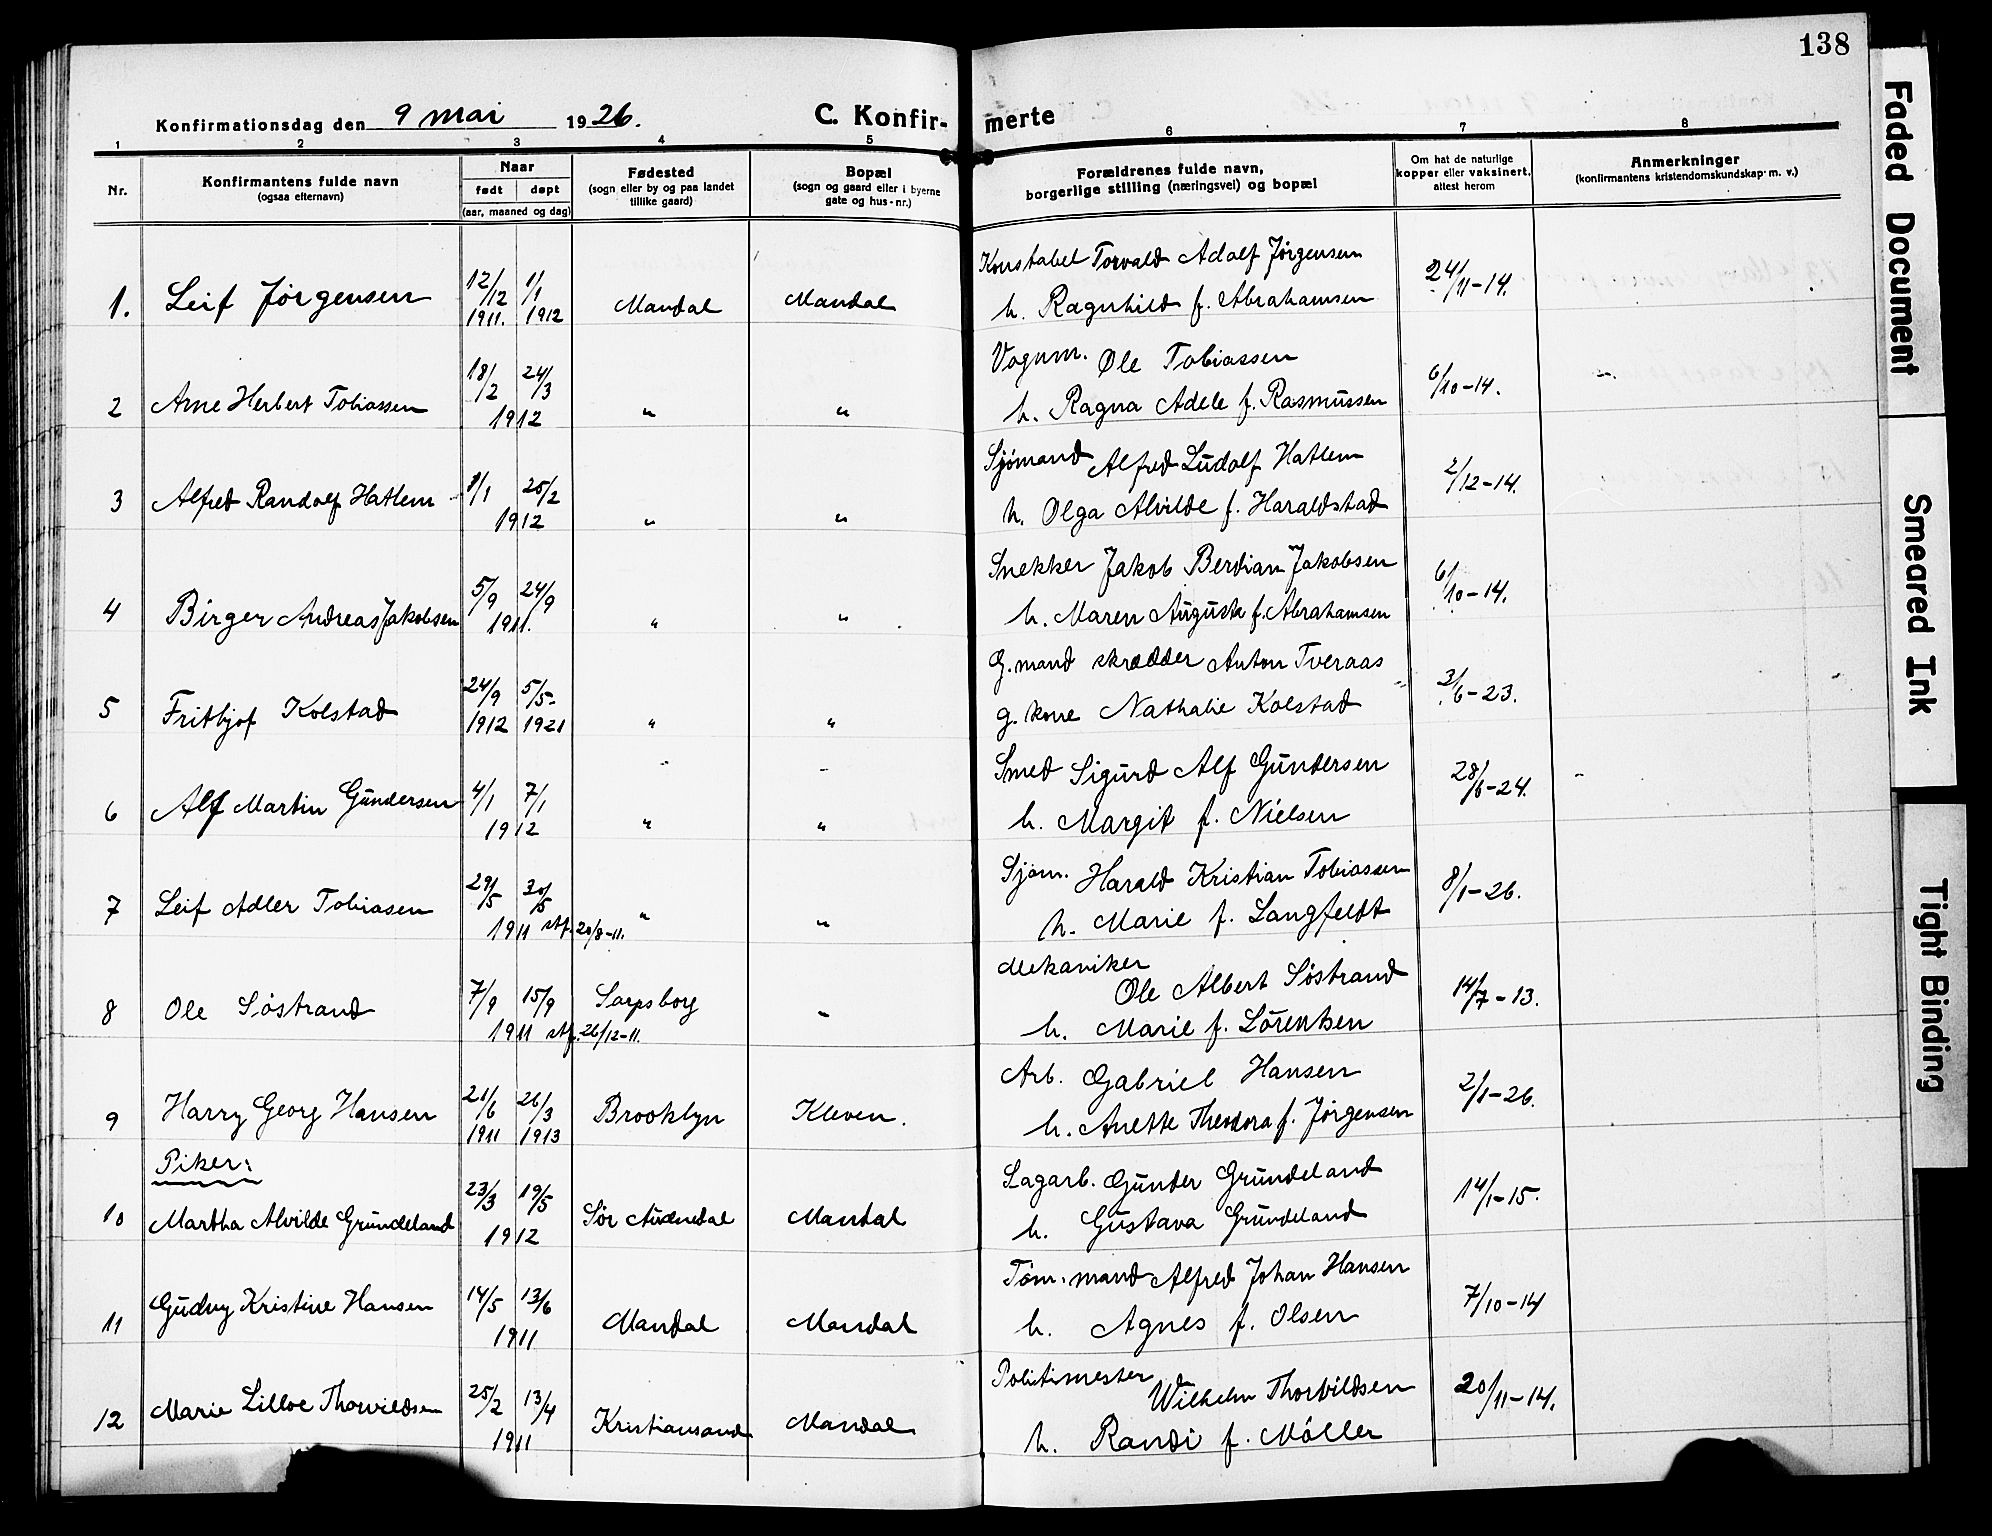 138
Konfirmationsdag den 9 mai 1926.
C. Konfirmerte
1 2 3 4 5 6 7 8
Nr.
Konfirmantens fulde navn
(ogsaa efternavn)
Naar
født døpt
(aar, maaned og dag)
Fødested
(sogn eller by og paa landet
tillike gaard)
Bopæl
(sogn og gaard eller i byerne
gate og hus-nr.)
Forældrenes fulde navn,
borgerlige stilling (næringsvei) og bopæl
Om hat de naturlige
kopper eller vaksinert,
attest herom
Anmerkninger
(konfirmantens kristendomskundskap m. v.)
1. Leif Jørgensen 12/12 1911. 1/1 1912 Mandal Mandal
Konstabel Torvald Adolf Jørgensen
h. Ragnhild f. Abrahamsen 24/11-14.
2 Arne Herbert Tobiassen 18/2 24/3 1912 " "
Vognm. Ole Tobiassen
h. Ragna Adele f. Rasmussen 6/10-14.
3 Alfred Randolf Hatlem 1/1 25/2 1912 " "
Sjømand Alfred Ludolf Hatlem
h. Olga Alvilde f. Haraldstad 2/12-14.
4 Birger Andreas Jakobsen 5/9 24/9 1911. " "
Snekker Jakob Berdian Jakobsen
h. Maren Augusta f. Abrahamsen 6/10-14.
5 Fritjof Kolstad 24/9 1912 5/5 1921 " "
G. mand skrædder Anton Tveraas
g. kone Nathalie Kolstad 3/6-23.
6 Alf Martin Gundersen 4/1 7/1 1912 " "
Smed Sigurd Alf Gundersen
h. Margit f. Nielsen 28/6-24.
7 Leif Adler Tobiasen 29/5 30/5 1911 stf. 20/8-11. " "
Sjøm. Harald Kristian Tobiassen
h. Marie f. Langfeldt 8/1-26.
8 Ole Søstrand 7/9 15/9 1911 stf. 26/12-11. Sarpsborg "
Mekaniker
Ole Albert Søstrand
h. Marie f. Lorentsen 14/7-13.
9 Harry Georg Hansen 21/6 1911 26/3 1913 Brooklyn Kleven.
Arb. Gabriel Hansen
h. Anette Theodora f. Jørgensen 2/1-26.
Piker:
10 Martha Alvilde Grundeland 23/3 19/5 1912 Sør Audnedal Mandal
Sagarb. Gunder Grundeland
h. Gustava Grundeland 14/1-15.
11 Gudny Kristine Hansen 14/5 13/6 1911 Mandal Mandal
Tøm.mand Alfred Johan Hansen
h. Agnes f. Olsen 7/10-14
12 Marie Lilloe Thorvildsen 25/2 13/4 1911 Kristiansand Mandal
Politimester
Wilhelm Thorvildsen
h. Randi f. Møller 20/11-14.
Faded Document
Smeared Ink
Tight Binding